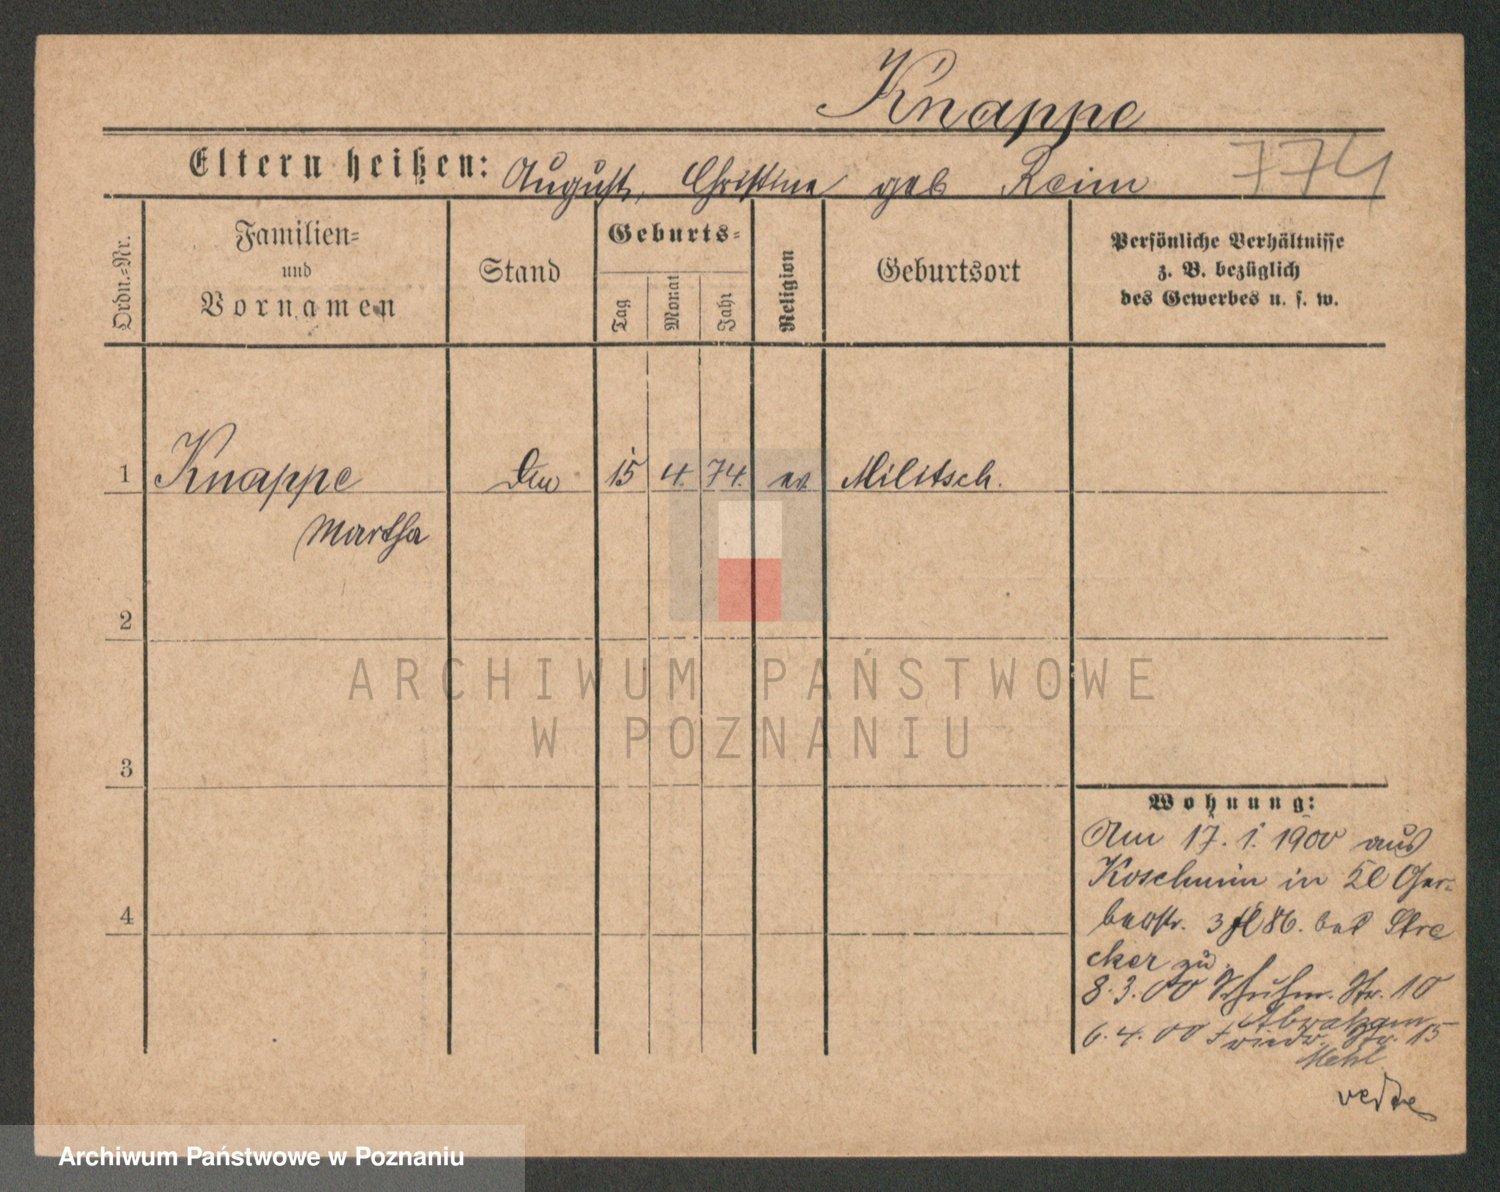 Knappe
Eltern heißen: August, Christine geb Reim
774
Ordn.-Nr.
Familien-
und
Vornamen
Stand
Geburts-
Tag
Monat
Jahr
Religion
Geburtsort
Persönliche Verhältnisse
z. B. bezüglich
des Gewerbes u. s. w.
1 Knappe 15 4. 74. ev. Militsch.
Martha
2
3
4
ARCHIWUM PAŃSTWOWE
W POZNANIU
Wohnung:
Am 17. 1. 1900 aus
Koschmin in Ger-
berstr. 3 bei Stre
cker zu
8. 3. 00 Schuhm. Str. 10
Abraham
6. 4. 00 Friedr. Str. 15
Mehl
Archiwum Państwowe w Poznaniu